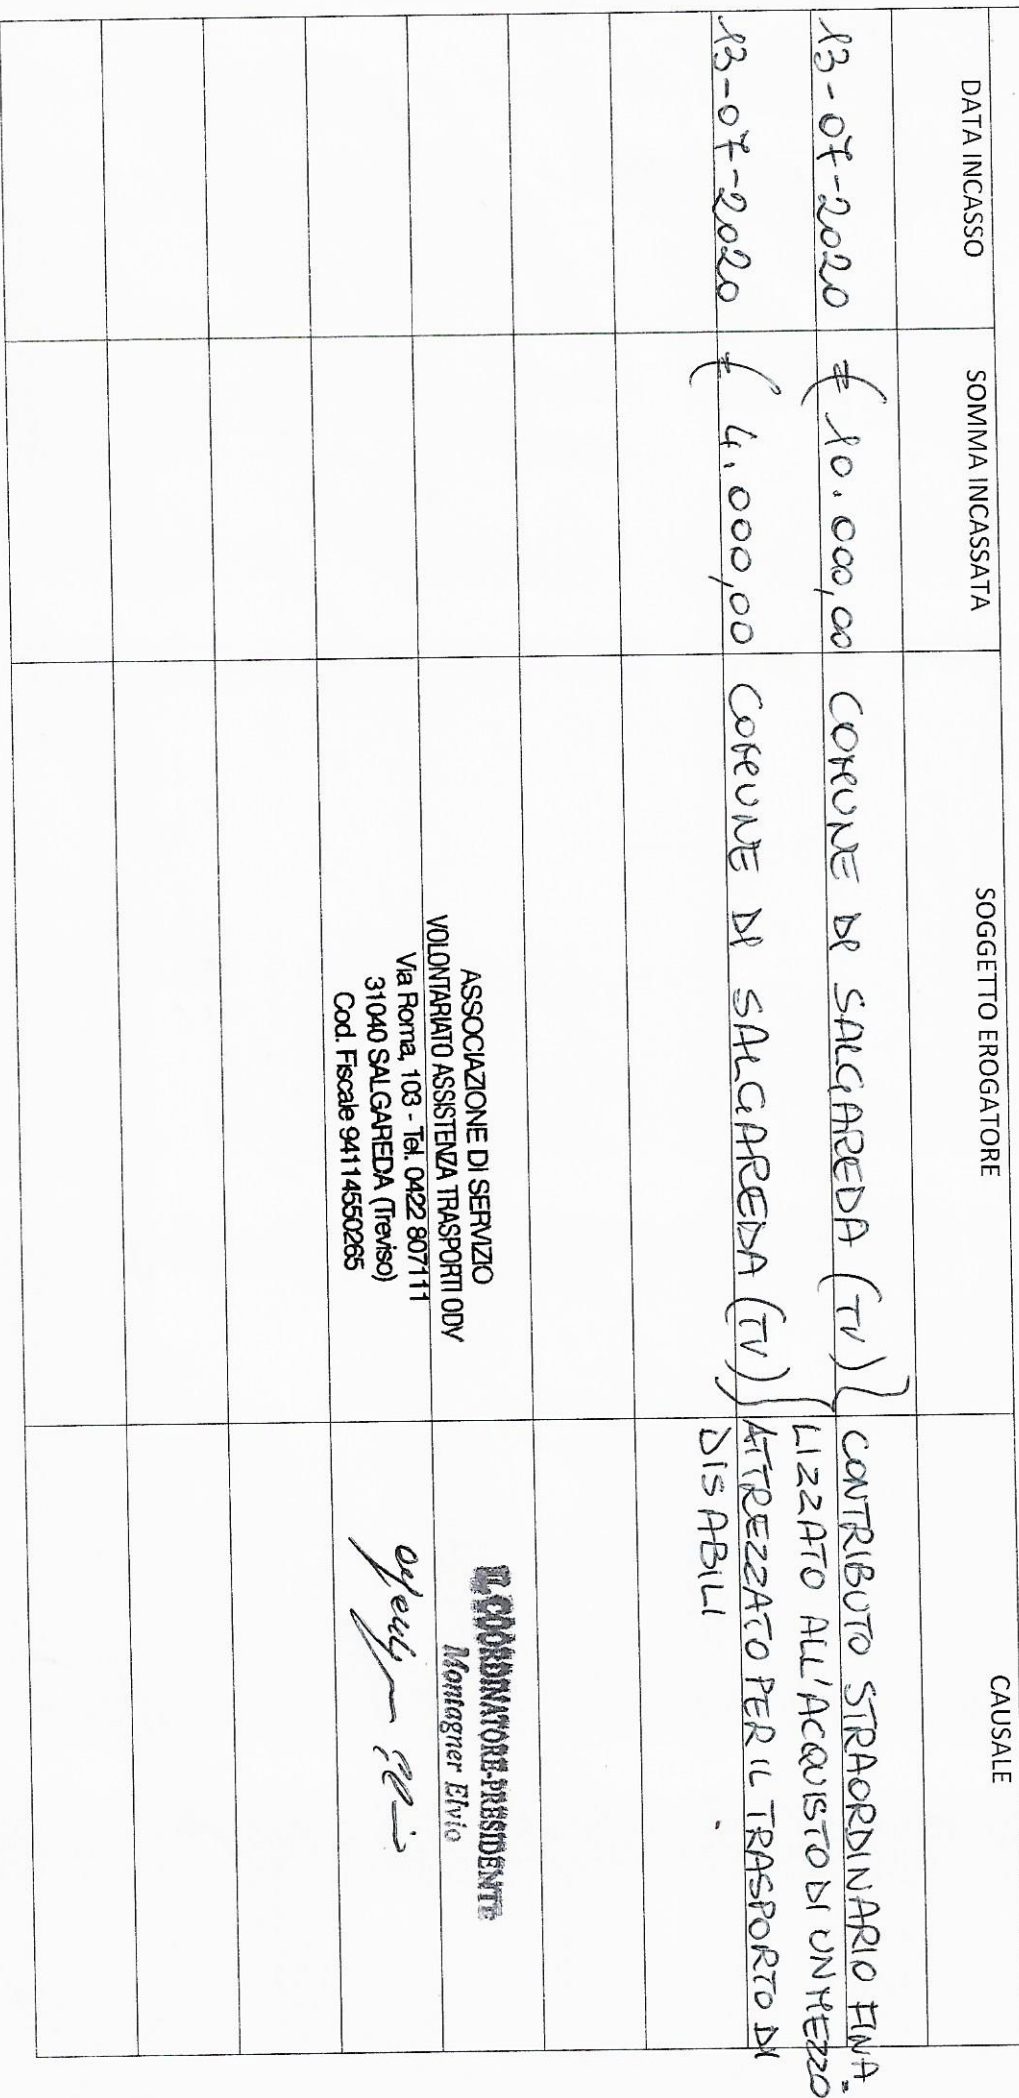 DATA INCASSO SOMMA INCASSATA SOGGETTO EROGATORE CAUSALE
13-07-2020 € 10.000,00 COMUNE DI SALGAREDA (TV) CONTRIBUTO STRAORDINARIO FINA=
LIZZATO ALL'ACQUISTO DI UN MEZZO
13-07-2020 € 4.000,00 COMUNE DI SALGAREDA (TV) ATTREZZATO PER IL TRASPORTO DI
DISABILI
ASSOCIAZIONE DI SERVIZIO
VOLONTARIATO ASSISTENZA TRASPORTI ODV
Via Roma, 103 - Tel. 0422 807111
31040 SALGAREDA (Treviso)
Cod. Fiscale 94114550265
IL COORDINATORE-PRESIDENTE
Montagner Elvio